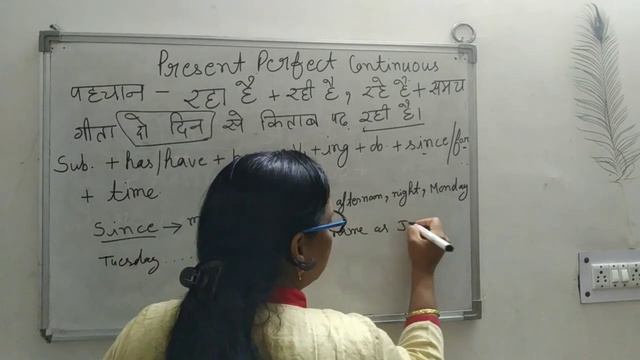 Present Perfect Continuous
पहचान - रहा है + रही है, रहे हैं + समय
गीता दो दिन से किताब पढ़ रही है।
Sub. + has/have + + ing + ob. + since/for
+ time
Since → afternoon, night, Monday
Tuesday .... as